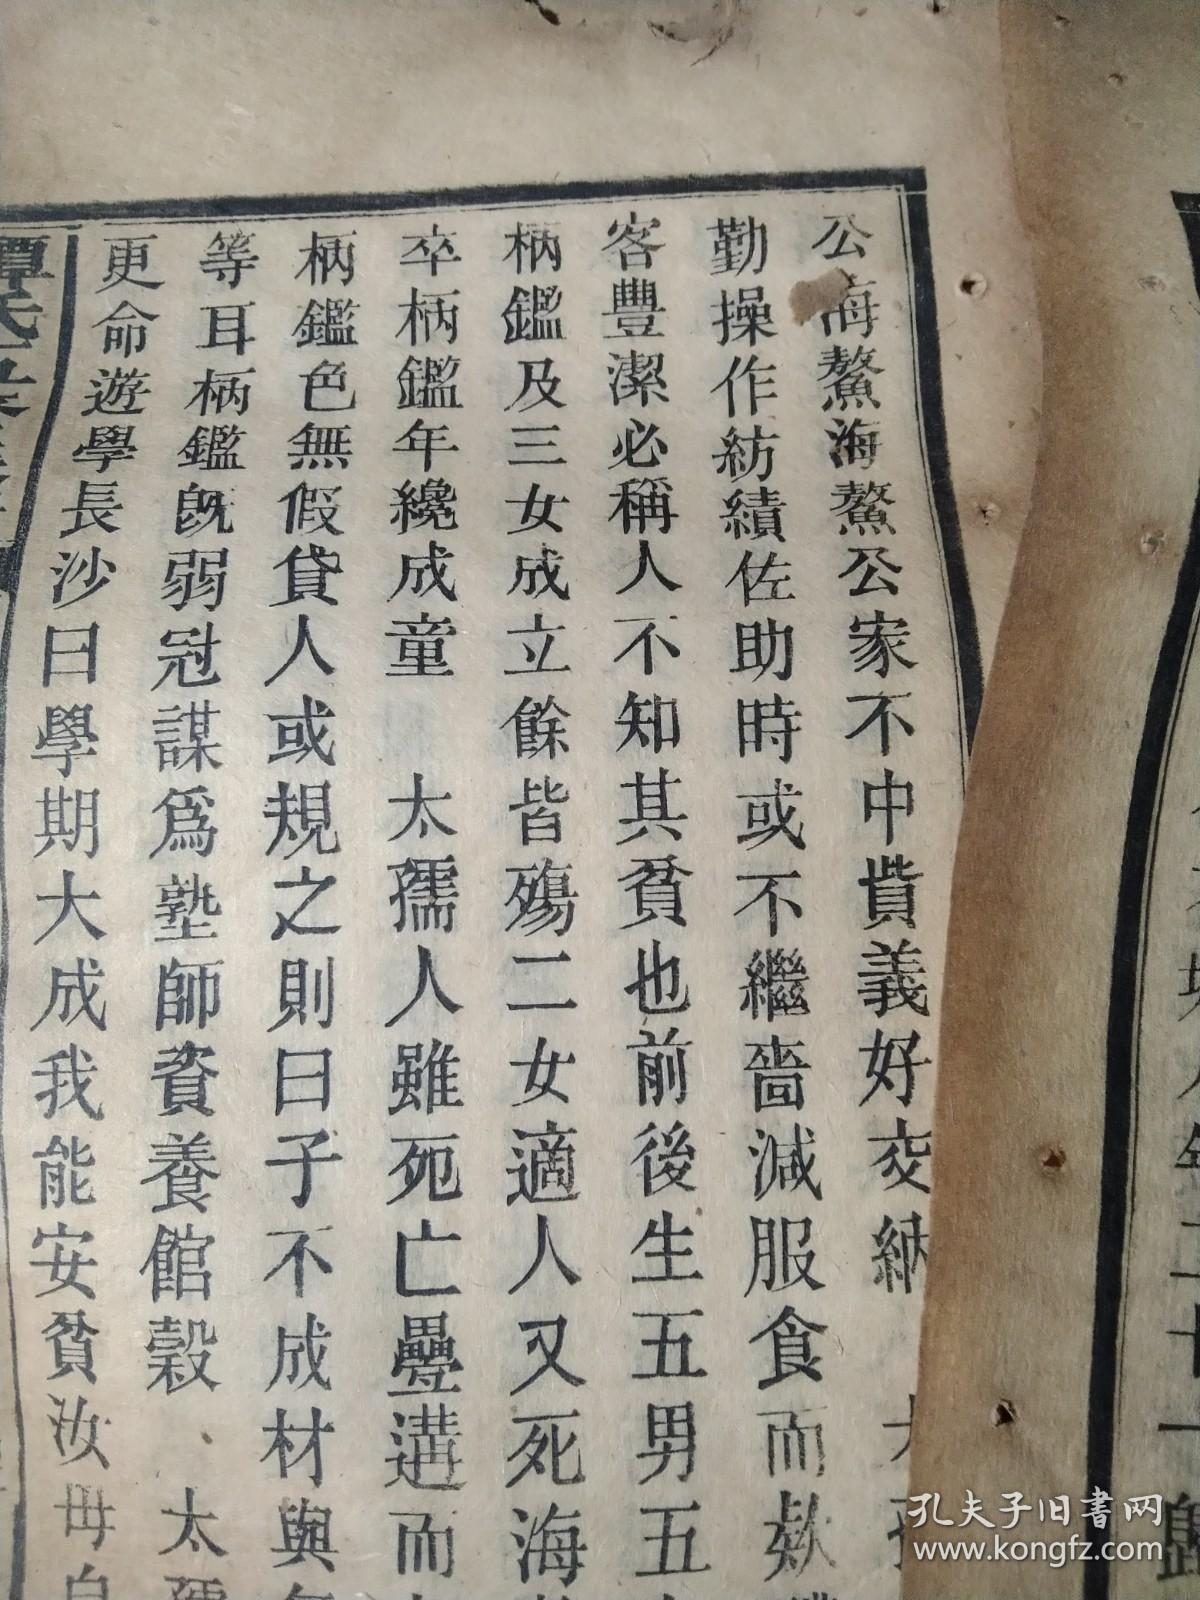 公海鰲海鰲公家不中貲義好交納
勤操作紡績佐助時或不繼嗇減服食而欵
客豐潔必稱人不知其貧也前後生五男五
柄鑑及三女成立餘皆殤二女適人又死海
卒柄鑑年纔成童　太孺人雖死亡疊遘而
柄鑑色無假貸人或規之則曰子不成材與
等耳柄鑑既弱冠謀爲塾師資養館穀　太孺
更命遊學長沙曰學期大成我能安貧汝毋自
譚氏
孔夫子旧書网
www.kongfz.com